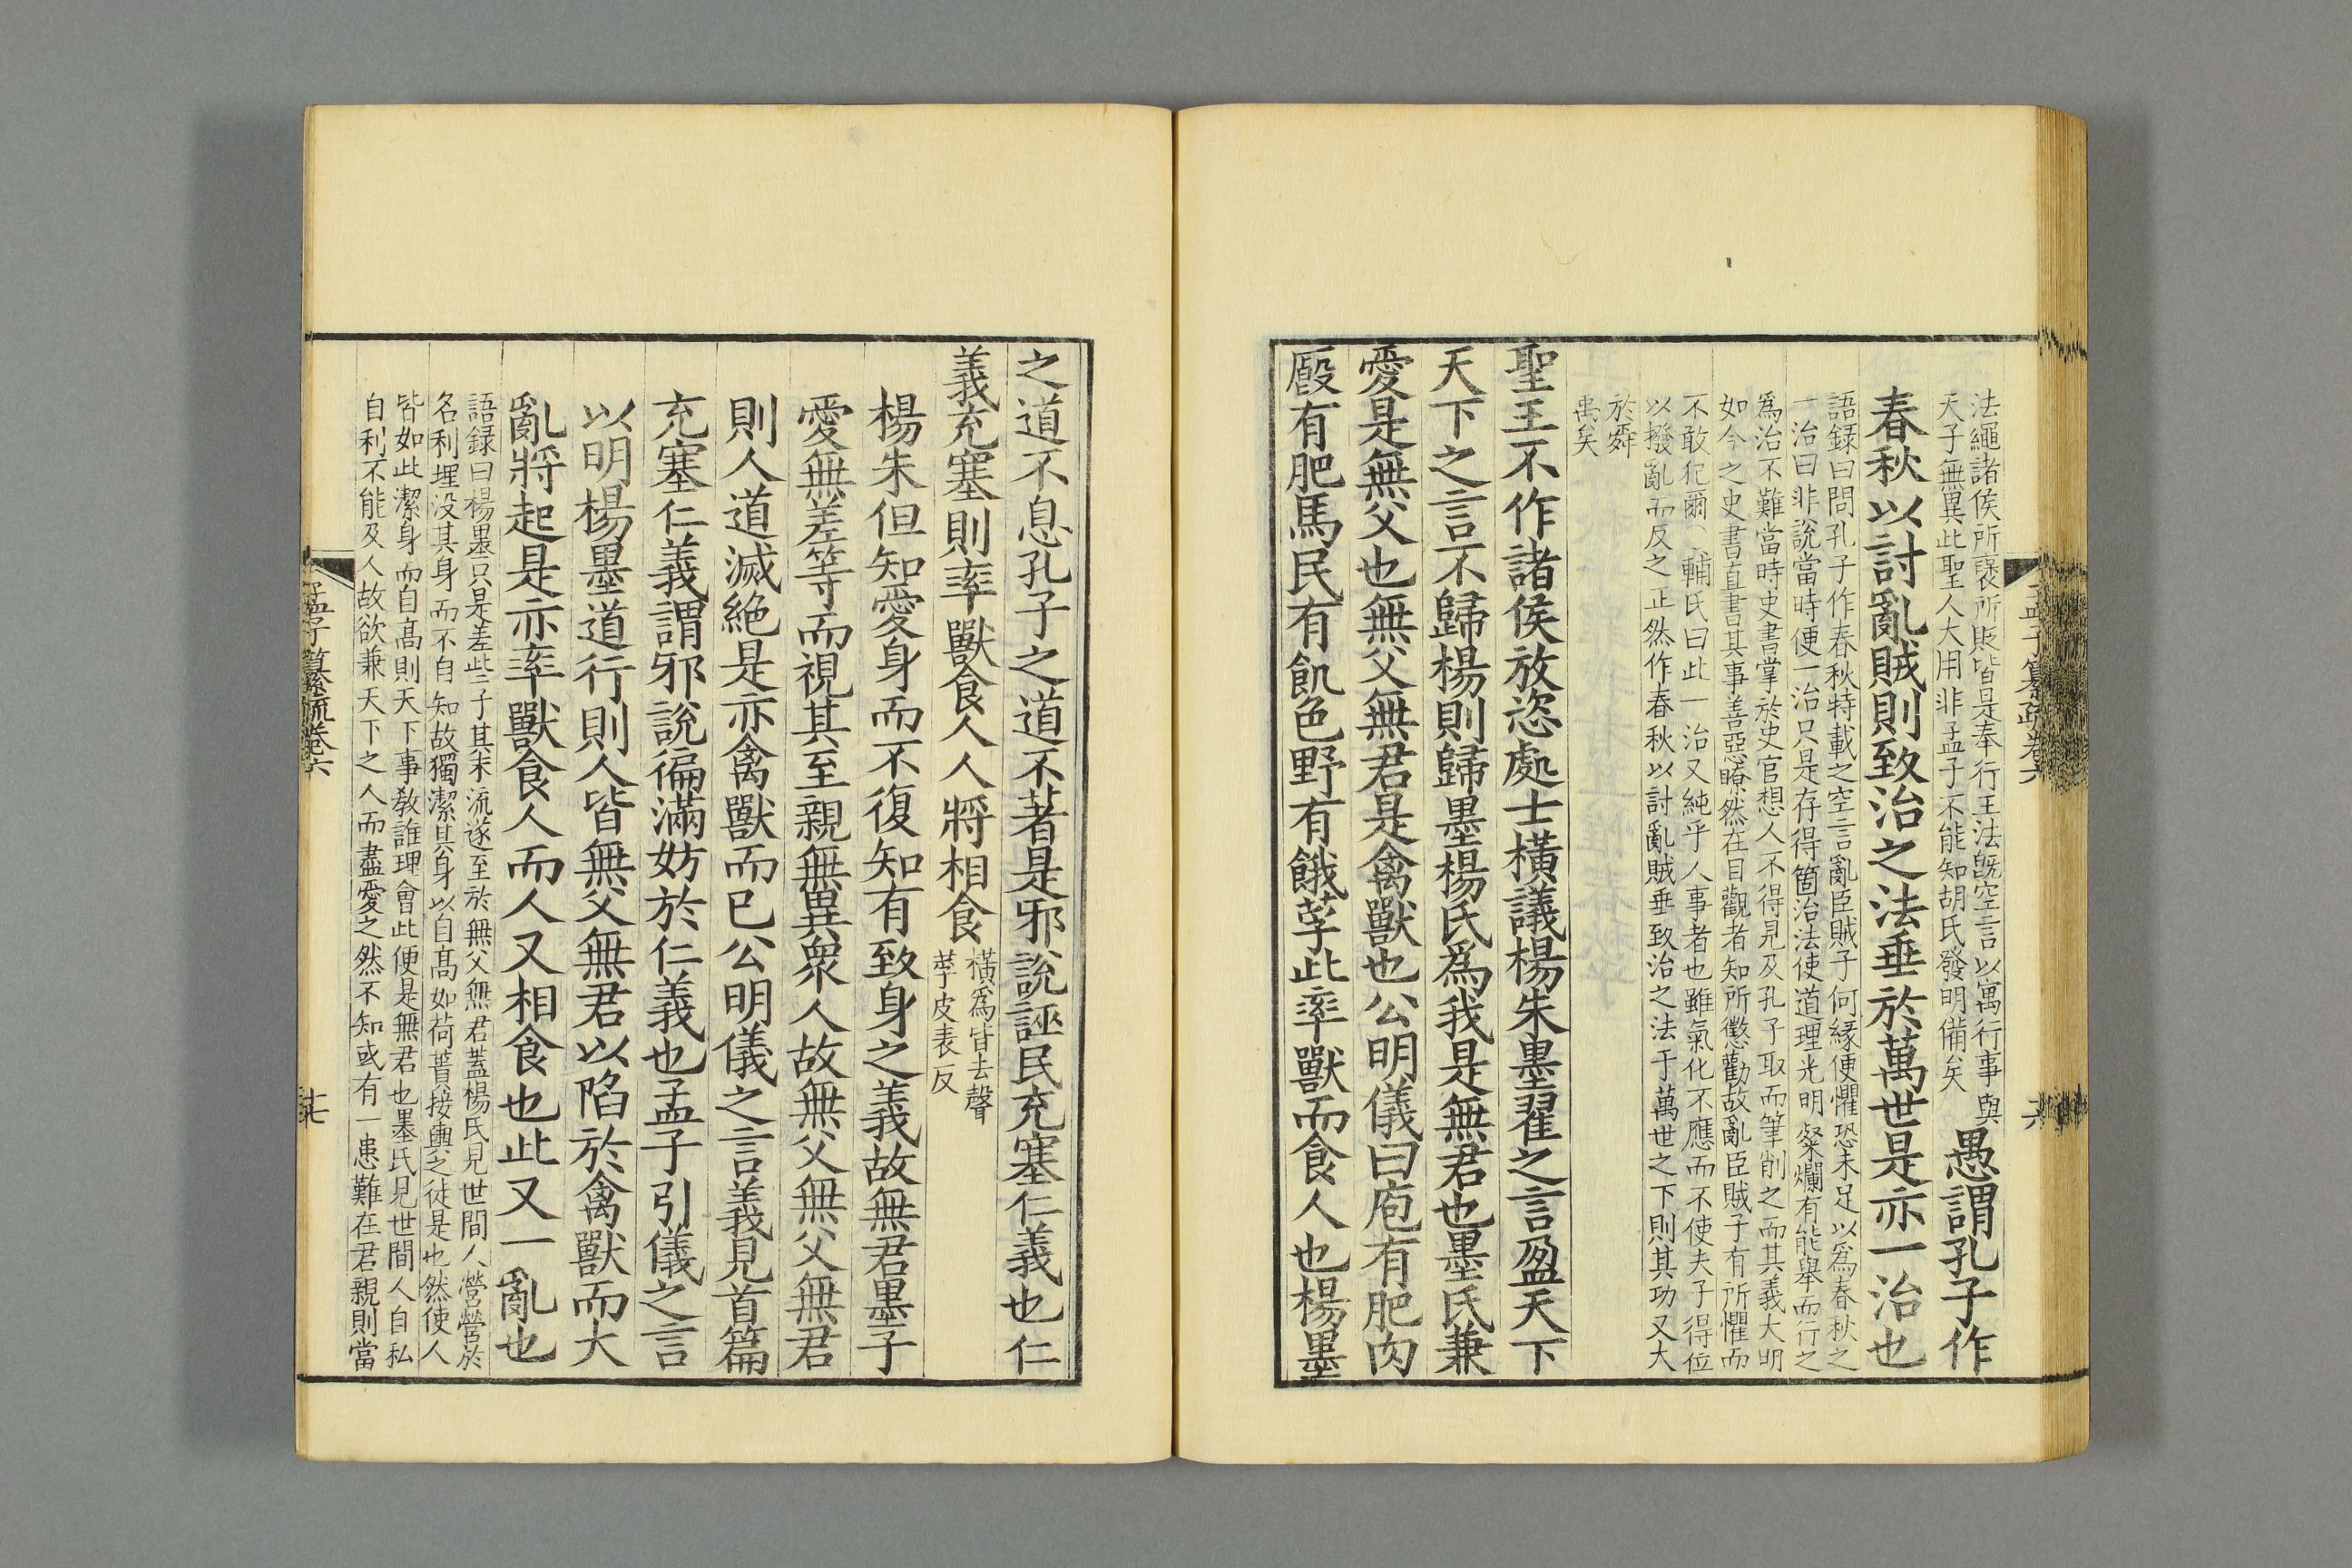 法繩諸侯所褒所貶皆是奉行王法旣空言以寓行事與
天子無異此聖人大用非孟子不能知胡氏發明備矣
愚謂孔子作
春秋以討亂賊則致治之法垂於萬世是亦一治也
語録曰問孔子作春秋特載之空言亂臣賊子何縁便懼恐未足以爲春秋之
一治曰非說當時便一治只是存得箇治法使道理光明粲爛有能舉而行之
爲治不難當時史書掌於史官想人不得見及孔子取而筆削之而其義大明
如今之史書直書其事善惡瞭然在目觀者知所懲勸故亂臣賊子有所懼而
不敢犯爾○輔氏曰此一治又純乎人事者也雖氣化不應而不使夫子得位
以撥亂而反之正然作春秋以討亂賊垂致治之法于萬世之下則其功又大
於舜
禹矣
聖王不作諸侯放恣處士橫議楊朱墨翟之言盈天下
天下之言不歸楊則歸墨楊氏爲我是無君也墨氏兼
愛是無父也無父無君是禽獸也公明儀曰庖有肥肉
廏有肥馬民有飢色野有餓莩此率獸而食人也楊墨
孟子纂疏卷六
之道不息孔子之道不著是邪說誣民充塞仁義也仁
義充塞則率獸食人人將相食
橫爲皆去聲
莩皮表反
楊朱但知愛身而不復知有致身之義故無君墨子
愛無差等而視其至親無異衆人故無父無父無君
則人道滅絶是亦禽獸而已公明儀之言義見首篇
充塞仁義謂邪說徧滿妨於仁義也孟子引儀之言
以明楊墨道行則人皆無父無君以陷於禽獸而大
亂將起是亦率獸食人而人又相食也此又一亂也
語録曰楊墨只是差些子其末流遂至於無父無君蓋楊氏見世間人營營於
名利埋没其身而不自知故獨潔其身以自髙如荷蕢接輿之徒是也然使人
皆如此潔身而自髙則天下事敎誰理會此便是無君也墨氏見世間人自私
自利不能及人故欲兼天下之人而盡愛之然不知或有一患難在君親則當
孟子纂疏卷六
十七